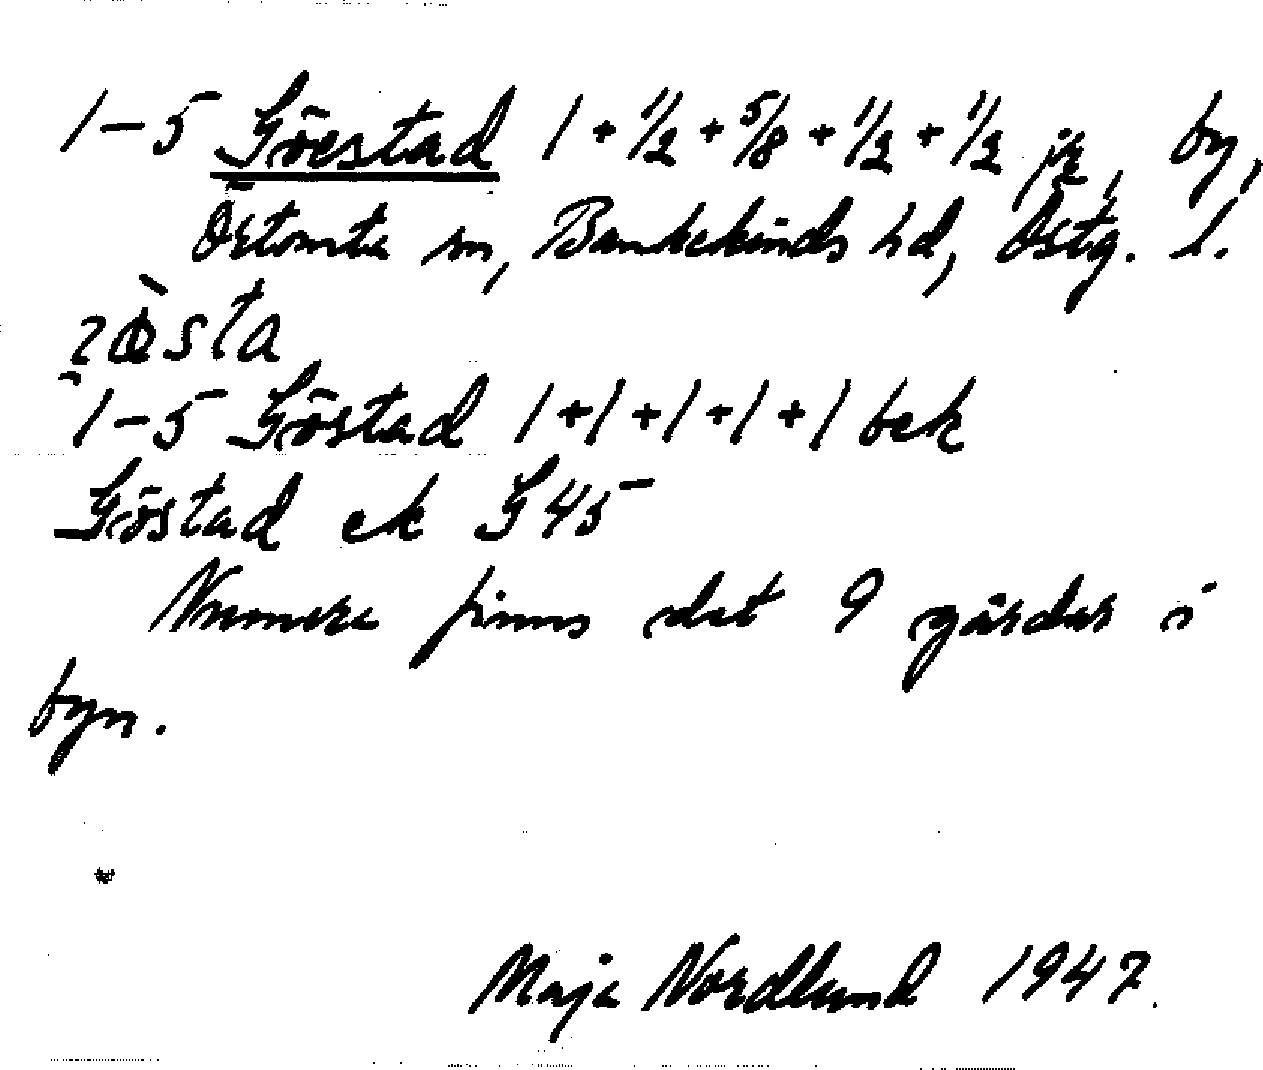 1-5 Göestad 1 + 1/2 + 5/8 + 1/2 + 1/2 jz, by,
Östomta sn, Bankekinds hd, Östg. l.
1-5 Göstad 1+1+1+1+1 bek
Göstad ek G 45
Nummera finns det 9 gårdar i
byn.
Maja Nordlund 1947.